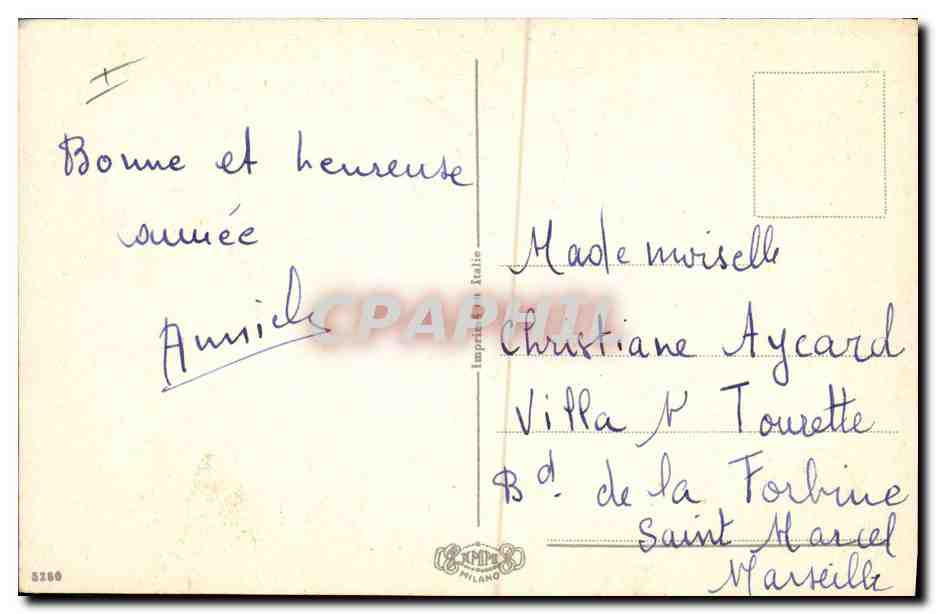 Bonne et heureuse
année
Mademoiselle
Christiane Aycard
Villa Tourette
Bd. de la Forbine
Saint Marcel
Marseille
Imprimé en Italie
CPAPHIL
MILANO
5260